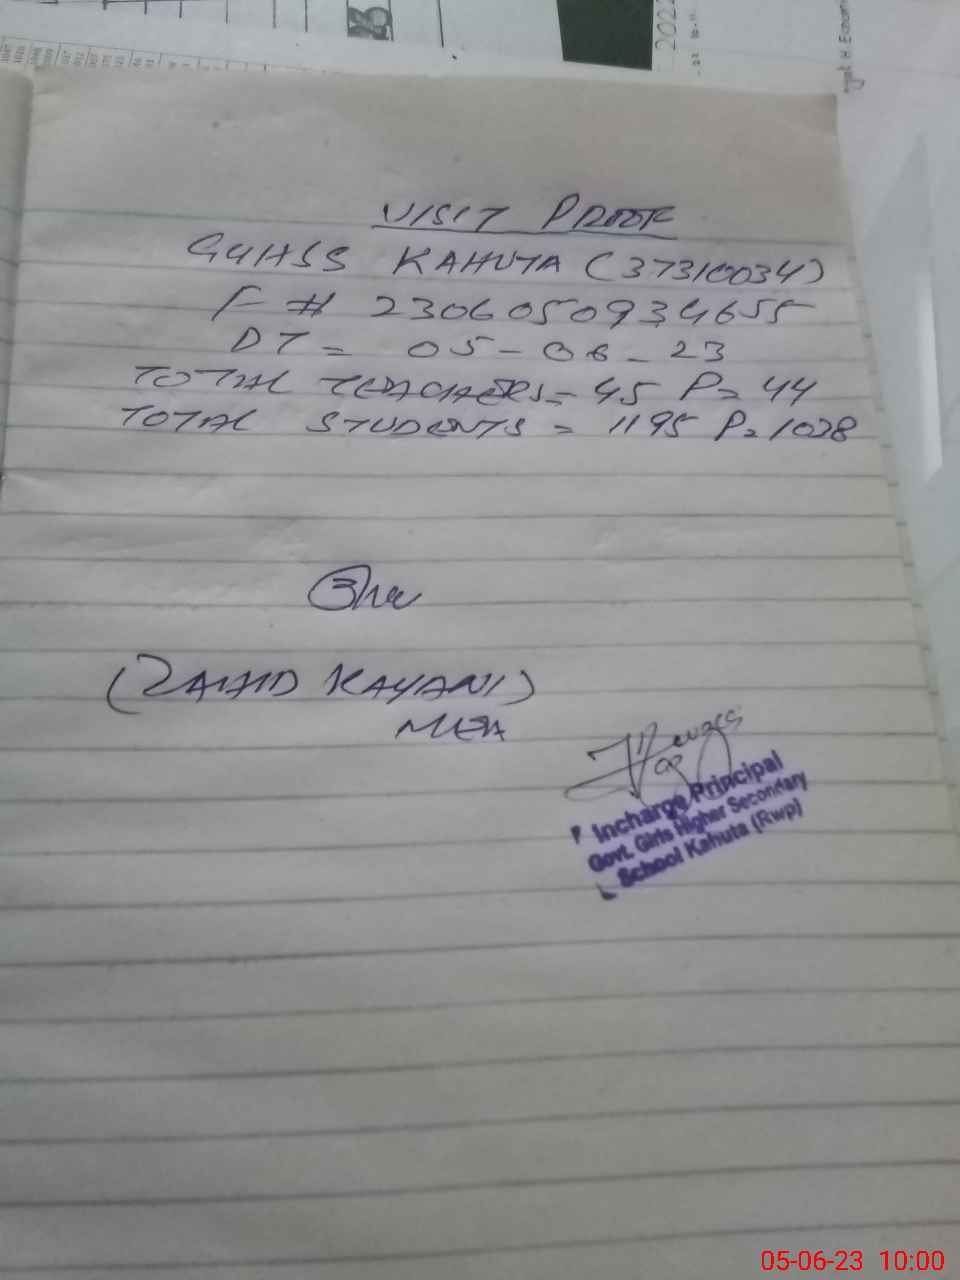 2022
VISIT PROOF
GGHSS KAHUTA (37310034)
F # 2306050934655
DT = 05-06-23
TOTAL TEACHERS = 45 P= 44
TOTAL STUDENTS = 1195 P= 1038
(ZAHID KAYANI)
MEA
Incharge Principal
Govt. Girls Higher Secondary
School Kahuta (Rwp)
05-06-23 10:00